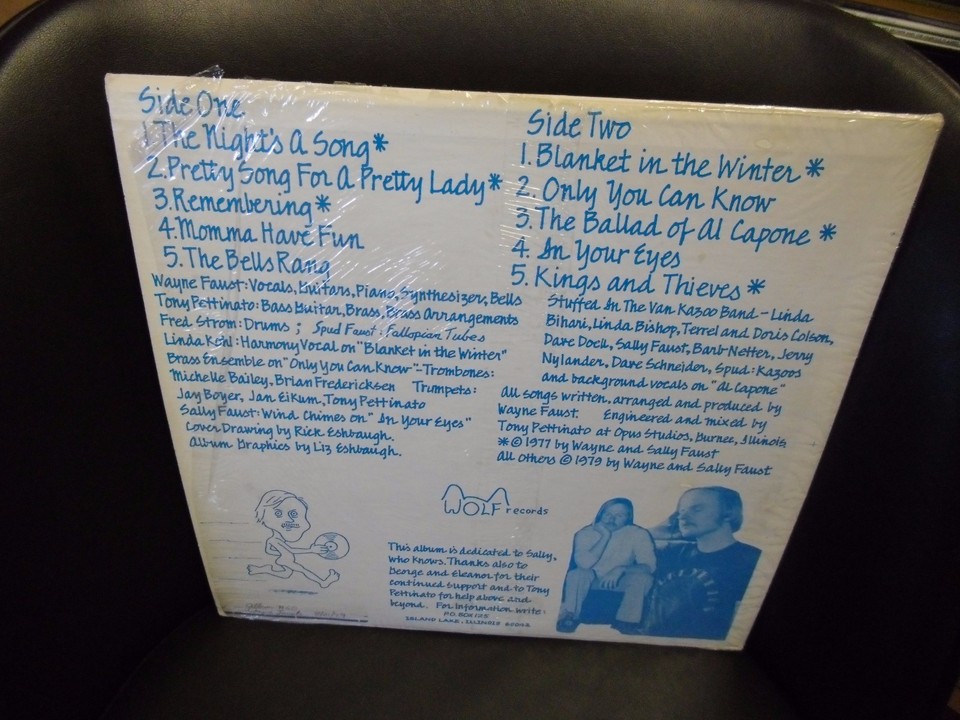 Side One
1. The Night's A Song*
2. Pretty Song For A Pretty Lady*
3. Remembering*
4. Momma Have Fun
5. The Bells Rang
Wayne Faust: Vocals, Guitars, Piano, Synthesizer, Bells
Tony Pettinato: Bass Guitar, Brass, Brass Arrangements
Fred Strom: Drums ; Spud Faust: Fallopian Tubes
Linda Kohl: Harmony Vocal on "Blanket in the Winter"
Brass Ensemble on "Only You Can Know"- Trombones:
Michelle Bailey, Brian Fredericksen Trumpets:
Jay Boyer, Jan Eikum, Tony Pettinato
Sally Faust: Wind Chimes on "In Your Eyes"
Cover Drawing by Rick Eshbaugh.
Album Graphics by Liz Eshbaugh.
Side Two
1. Blanket in the Winter *
2. Only You Can Know
3. The Ballad of Al Capone *
4. In Your Eyes
5. Kings and Thieves *
Stuffed In The Van Kazoo Band - Linda
Bihari, Linda Bishop, Terrel and Doris Colson,
Dave Doell, Sally Faust, Barb Netter, Jerry
Nylander, Dave Schneider, Spud: Kazoos
and background vocals on "Al Capone"
All songs written, arranged and produced by
Wayne Faust. Engineered and mixed by
Tony Pettinato at Opus Studios, Gurnee, Illinois
* © 1977 by Wayne and Sally Faust
All others © 1979 by Wayne and Sally Faust
WOLF records
This album is dedicated to Sally,
who knows. Thanks also to
George and Eleanor for their
continued support and to Tony
Pettinato for help above and
beyond. For Information write:
P.O. BOX 125
ISLAND LAKE, ILLINOIS